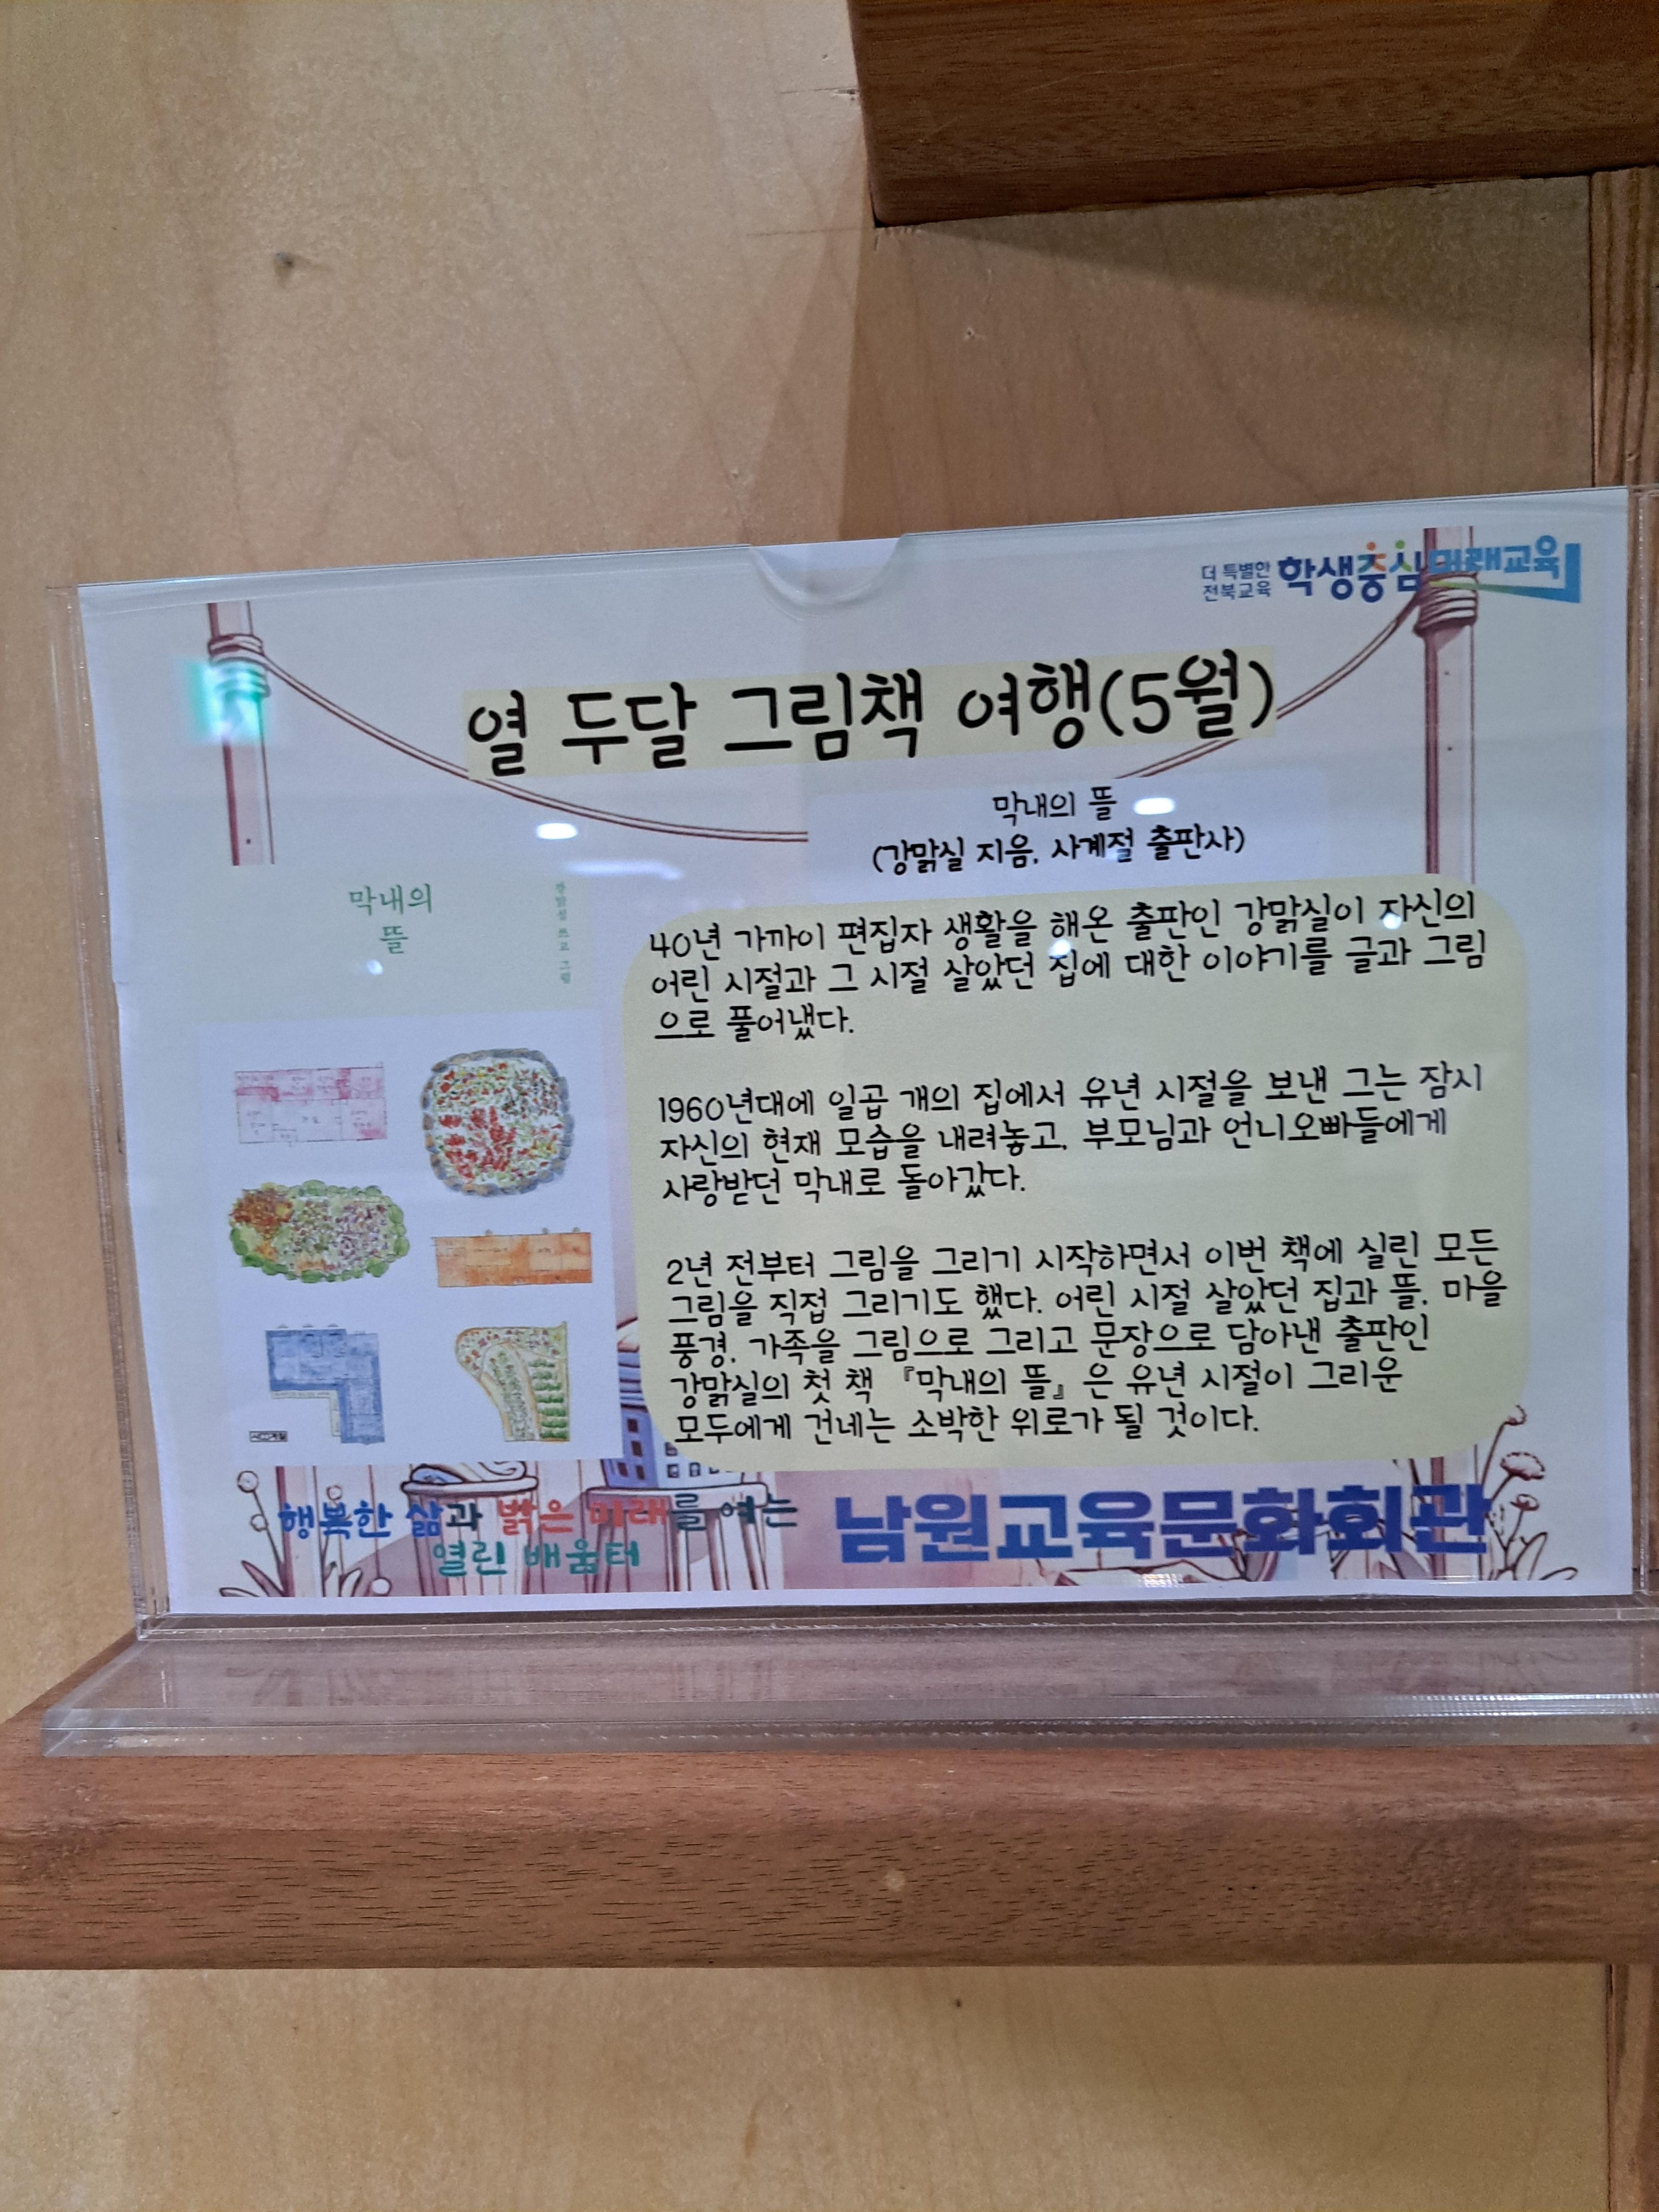 더 특별한
전북교육
학생중심 미래교육
열 두달 그림책 여행(5월)
막내의 뜰
(강맑실 지음, 사계절 출판사)
막내의
뜰
강맑실 쓰고 그림
40년 가까이 편집자 생활을 해온 출판인 강맑실이 자신의
어린 시절과 그 시절 살았던 집에 대한 이야기를 글과 그림
으로 풀어냈다.
1960년대에 일곱 개의 집에서 유년 시절을 보낸 그는 잠시
자신의 현재 모습을 내려놓고, 부모님과 언니오빠들에게
사랑받던 막내로 돌아갔다.
2년 전부터 그림을 그리기 시작하면서 이번 책에 실린 모든
그림을 직접 그리기도 했다. 어린 시절 살았던 집과 뜰, 마을
풍경, 가족을 그림으로 그리고 문장으로 담아낸 출판인
강맑실의 첫 책 『막내의 뜰』은 유년 시절이 그리운
모두에게 건네는 소박한 위로가 될 것이다.
행복한 삶과 밝은 미래를 여는
열린 배움터
남원교육문화회관